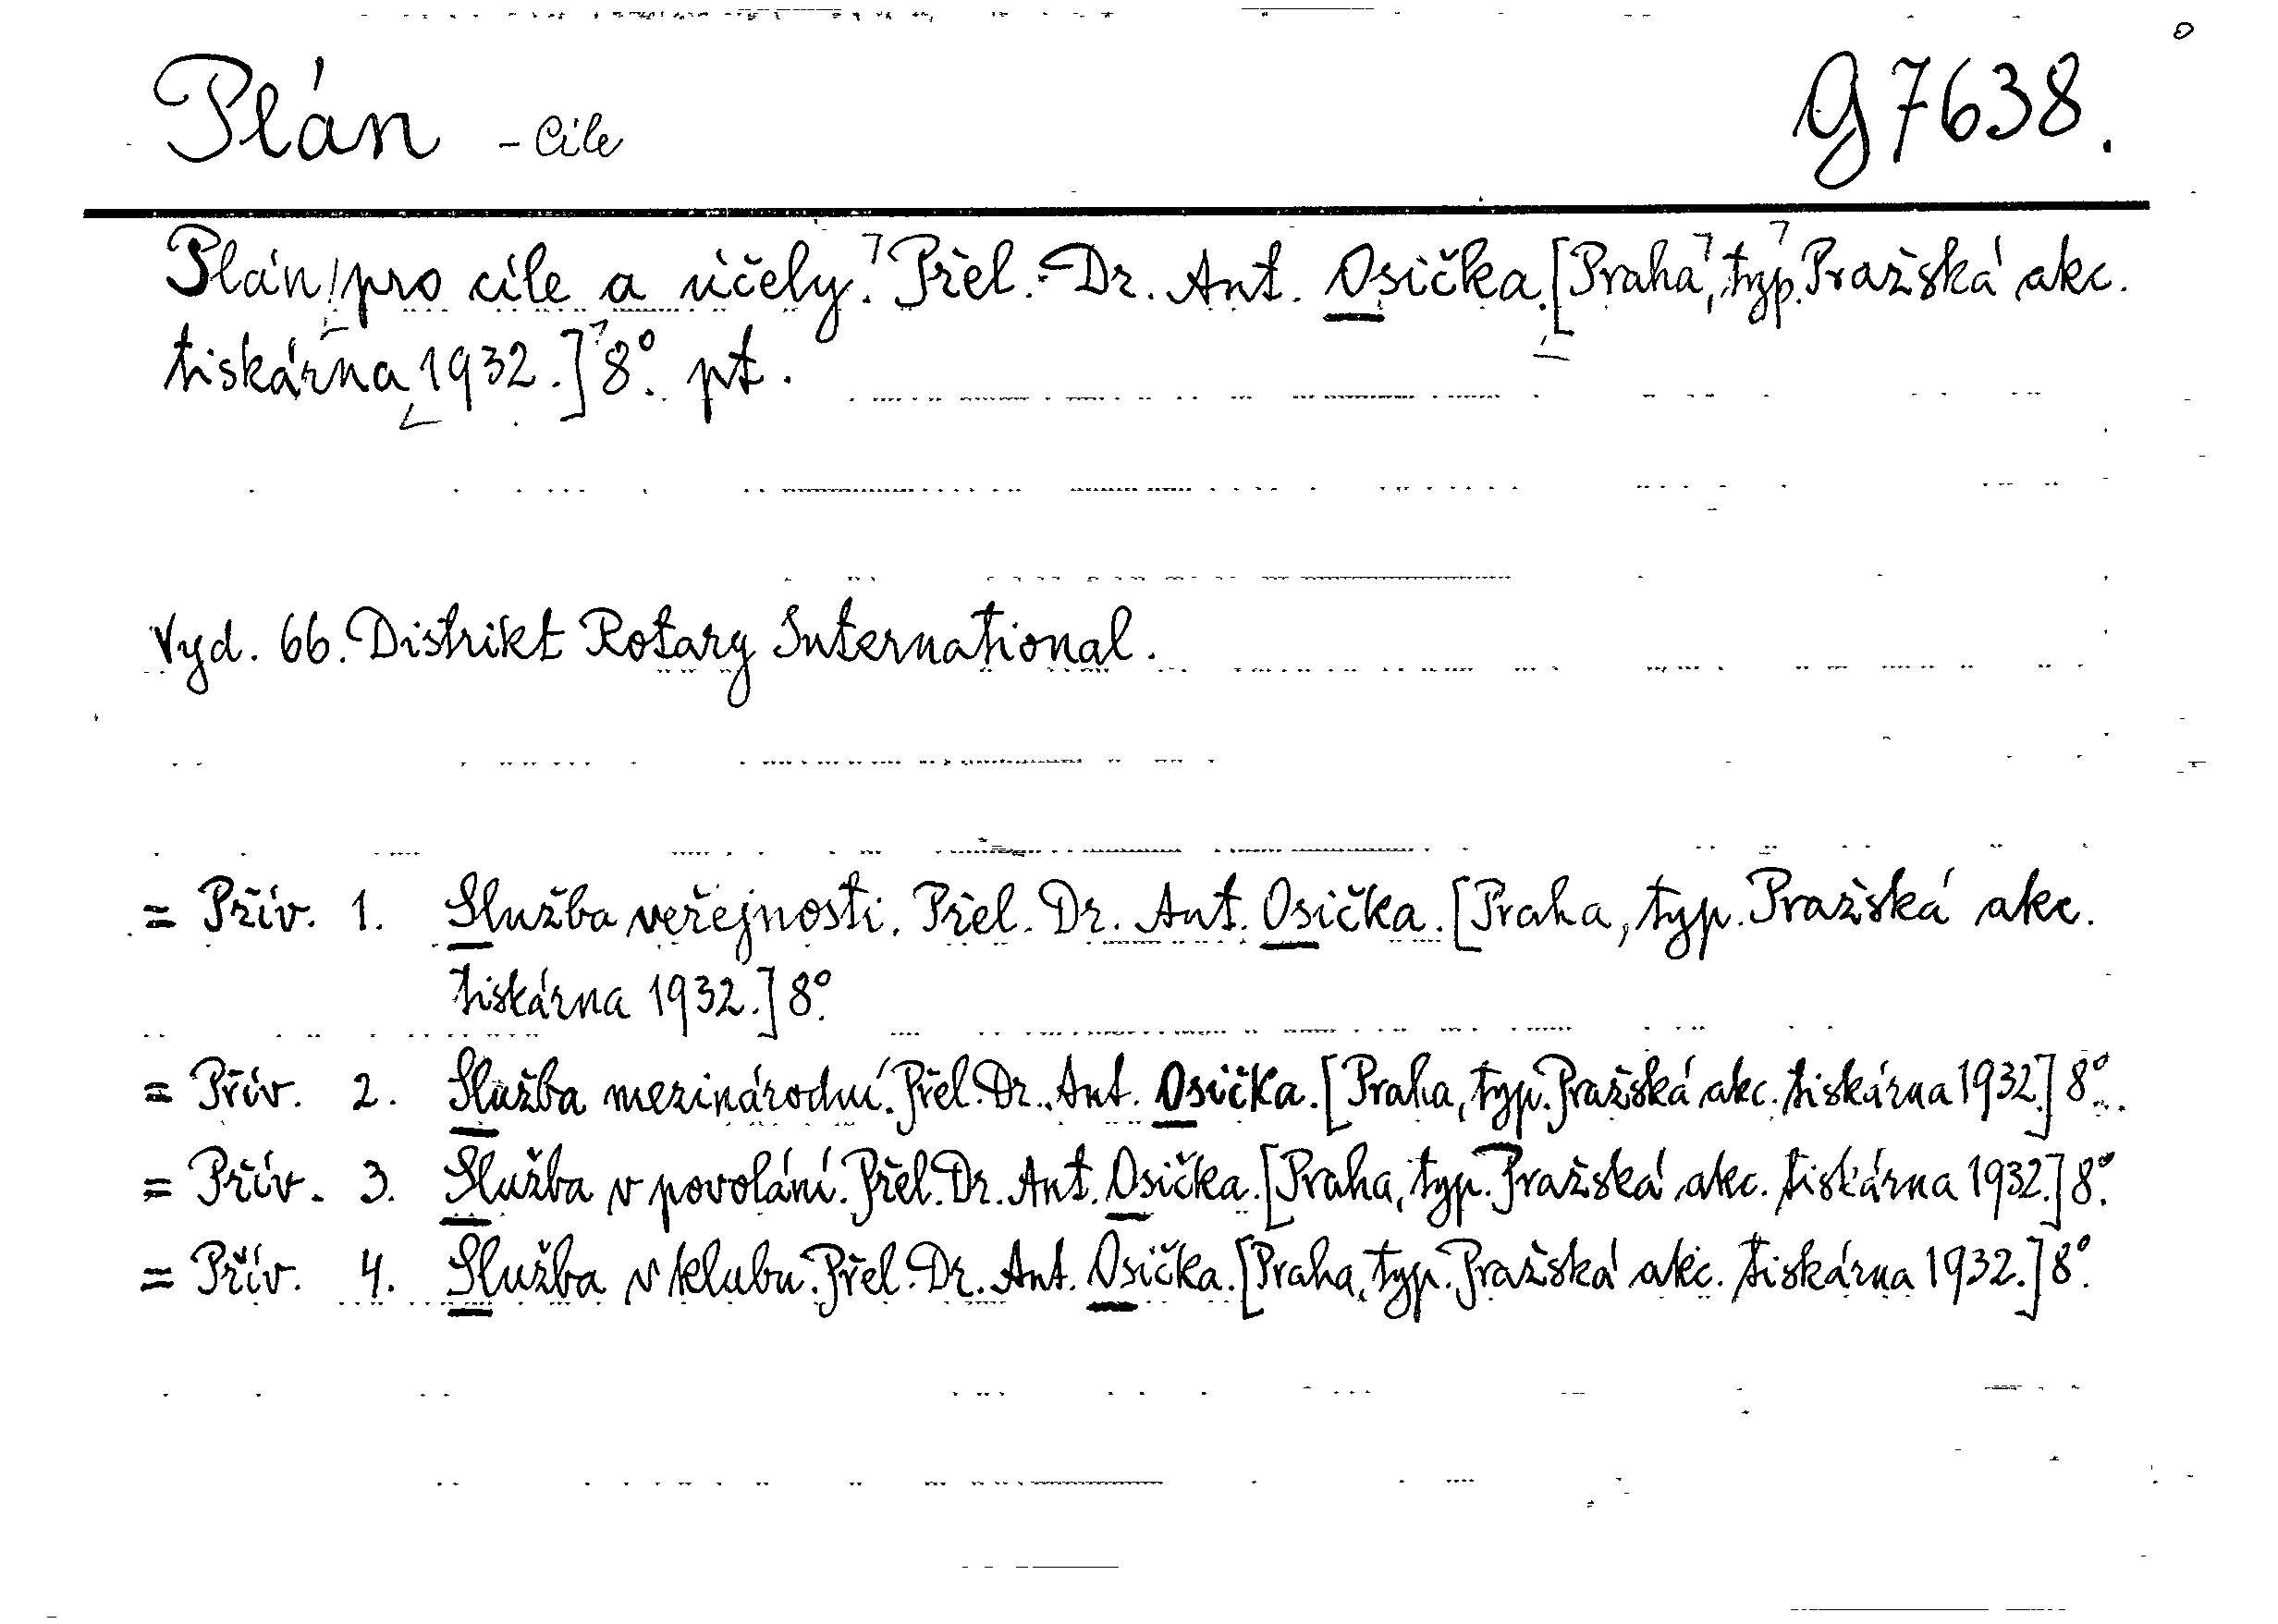 Plán - Cíle G 7638.
Plán pro cíle a účely. Přel. Dr. Ant. Osička. [Praha, typ. Pražská akc.
tiskárna 1932.] 8°. pt.
Vyd. 66. Distrikt Rotary International.
= Přív. 1. Služba veřejnosti. Přel. Dr. Ant. Osička. [Praha, typ. Pražská akc.
tiskárna 1932.] 8°.
= Přív. 2. Služba mezinárodní. Přel. Dr. Ant. Osička. [Praha, typ. Pražská akc. tiskárna 1932.] 8°.
= Přív. 3. Služba v povolání. Přel. Dr. Ant. Osička. [Praha, typ. Pražská akc. tiskárna 1932.] 8°.
= Přív. 4. Služba v klubu. Přel. Dr. Ant. Osička. [Praha, typ. Pražská akc. tiskárna 1932.] 8°.